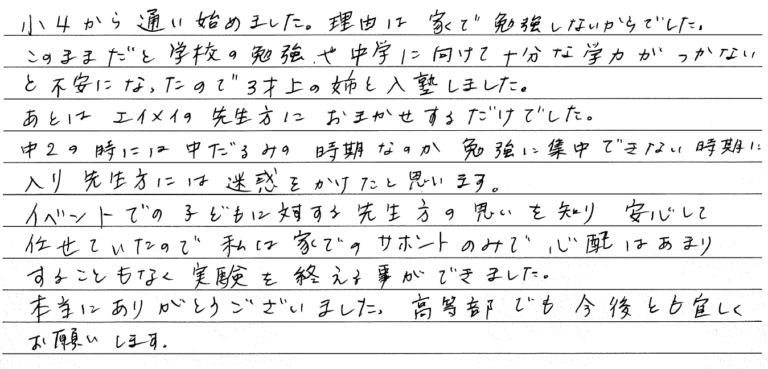 小4から通い始めました。理由は家で勉強しないからでした。
このままだと学校の勉強や中学に向けて十分な学力がつかない
と不安になったので3才上の姉と入塾しました。
あとはエイメイの先生方におまかせするだけでした。
中2の時には中だるみの時期なのか勉強に集中できない時期に
入り先生方には迷惑をかけたと思います。
イベントでの子どもに対する先生方の思いを知り安心して
任せていたので私は家でのサポートのみで心配はあまり
することもなく実験を終える事ができました。
本当にありがとうございました。高等部でも今後とも宜しく
お願いします。